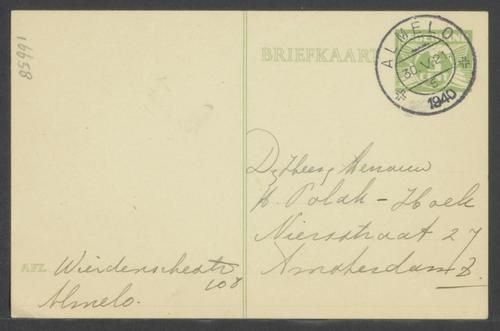 16658
BRIEFKAART
ALMELO
30.V.21
1940
De Heer, Mevrouw
H. Polak - Hoek
Niersstraat 27
Amsterdam Z.
AFZ. Wierdenschestr
108
Almelo.